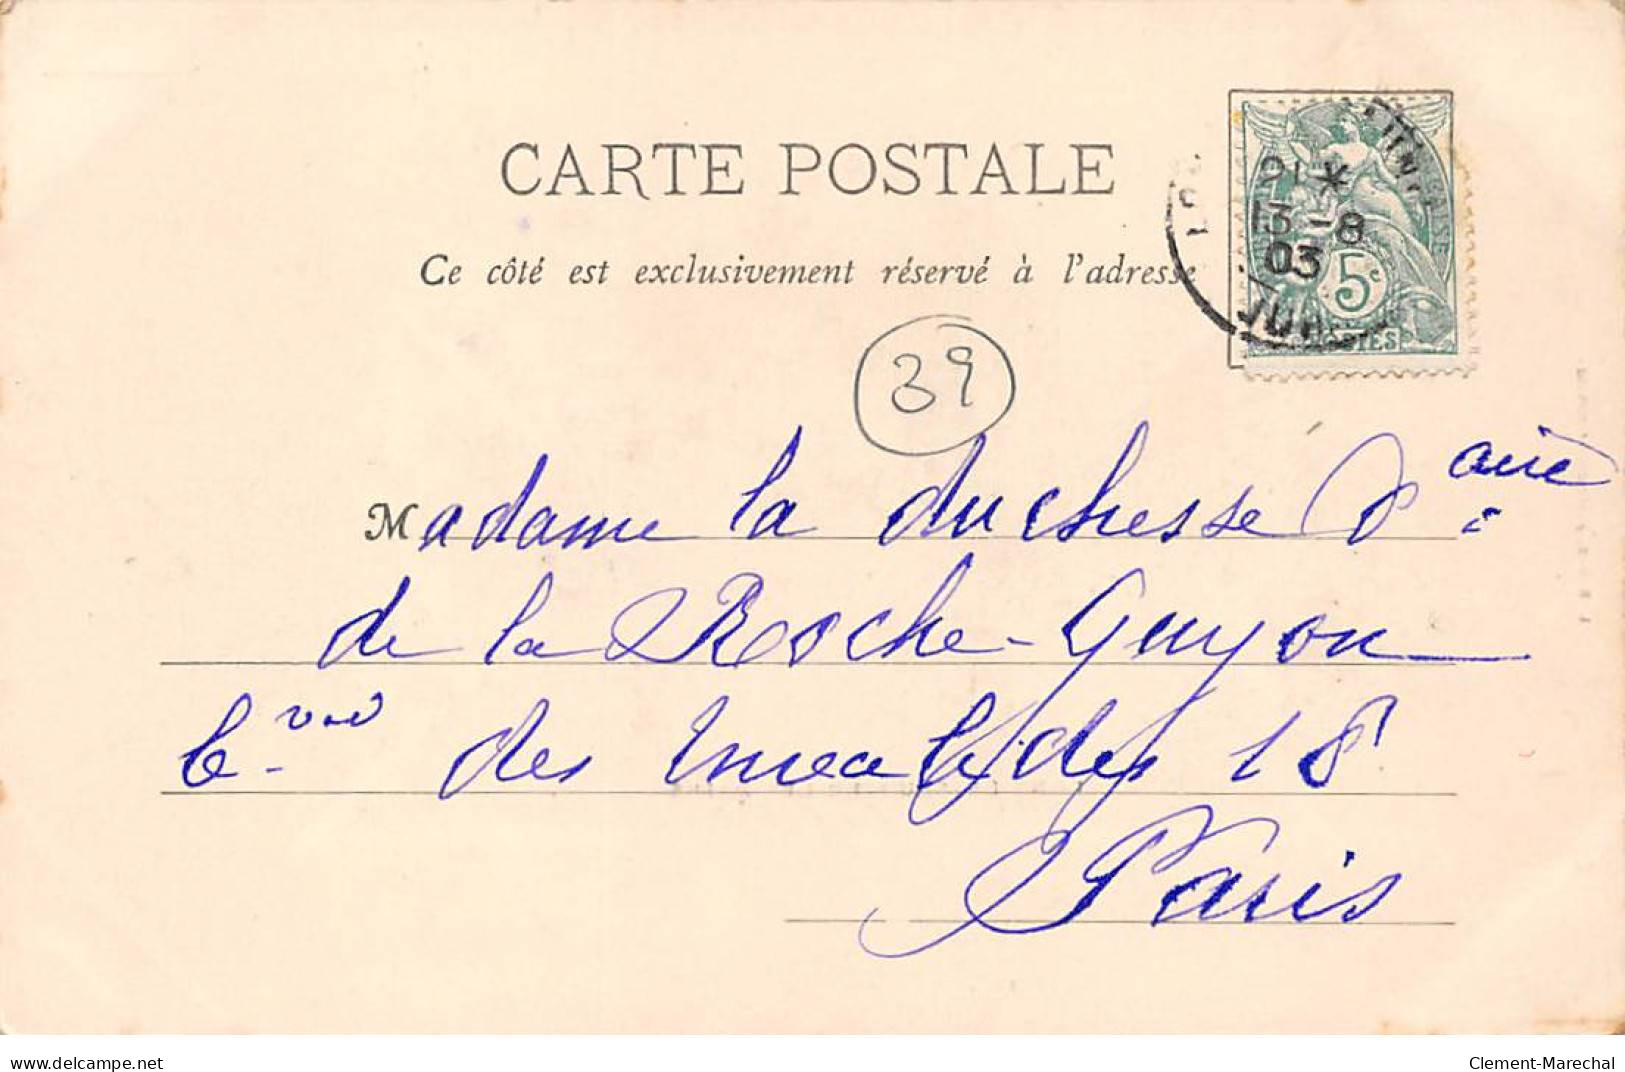 CARTE POSTALE
Ce côté est exclusivement réservé à l'adresse
21*
13-8
03
5c
39
Madame la duchesse D.aire
de la Roche-Guyon
Bvd des Invalides 18
Paris
www.delcampe.net
Clement-Marechal